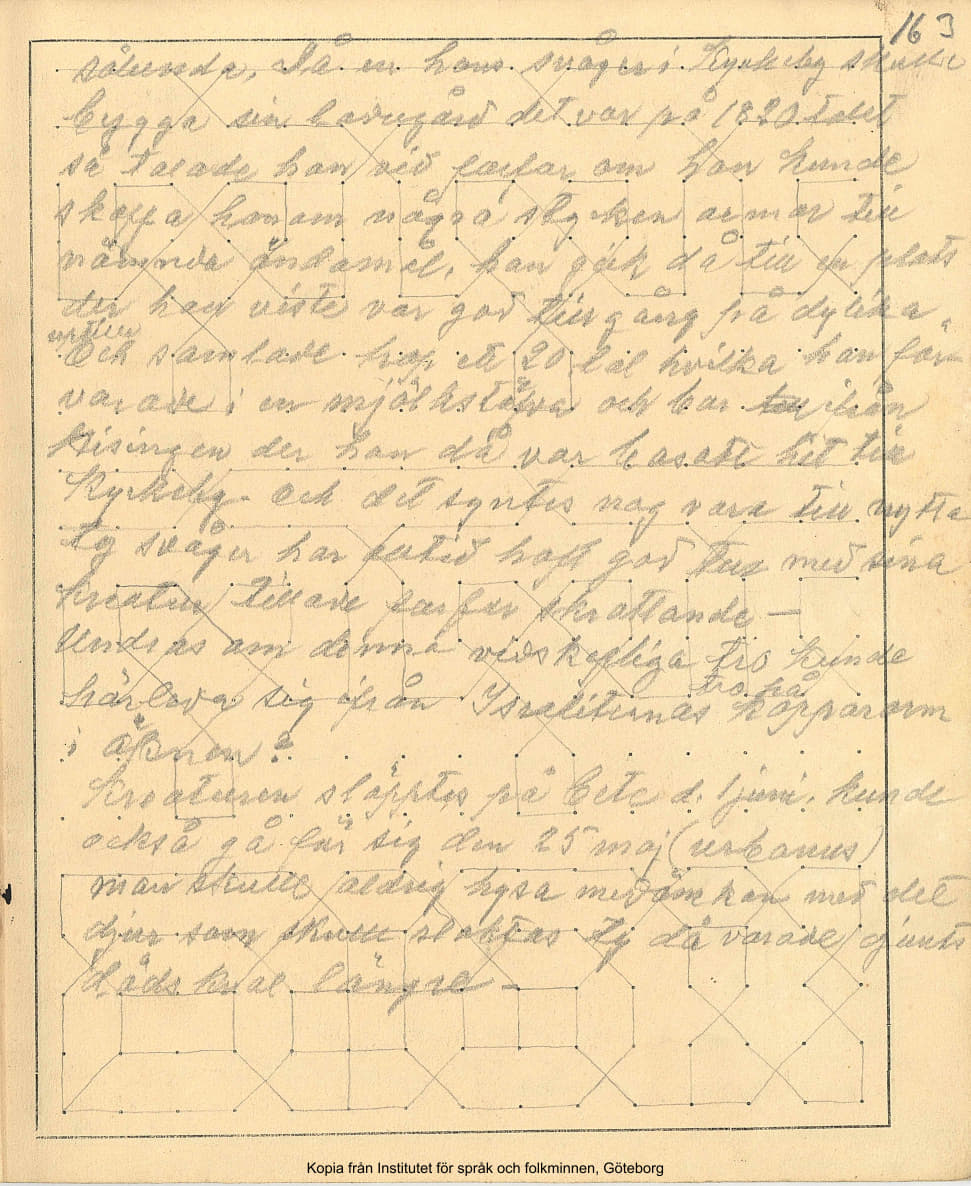 163
sålunda. Då en hans svåger i Kyrkeby skulle
bygga sin ladugård det var på 1820 talet
så talade han vid farfar om han kunde
skaffa honom några stycken ormar till
nämnda ändamål, han gick då till en plats
der han viste var god tillgång på dylika
reptiler
Och samlade hop ett 20 tal hvilka han för-
varade i en mjölkstäfva och bar ifrån
Hisingen der han då var bosatt hit till
Kyrkeby. Och det syntes nog vara till nytta
ty svåger har alltid haft god tur med sina
kreatur tillade farfar skrattande —
Undras om denna vidskepliga tro kunde
härleda sig ifrån Israeliternas kopparorm
tro på
i öknen?
Kreaturen släpptes på bete d. 1 juni. kunde
också gå för sig den 25 maj (urbanus)
man skulle aldrig hysa medömkan med det
djur som skulle slaktas ty då varade djurets
dödskval längre —
Kopia från Institutet för språk och folkminnen, Göteborg